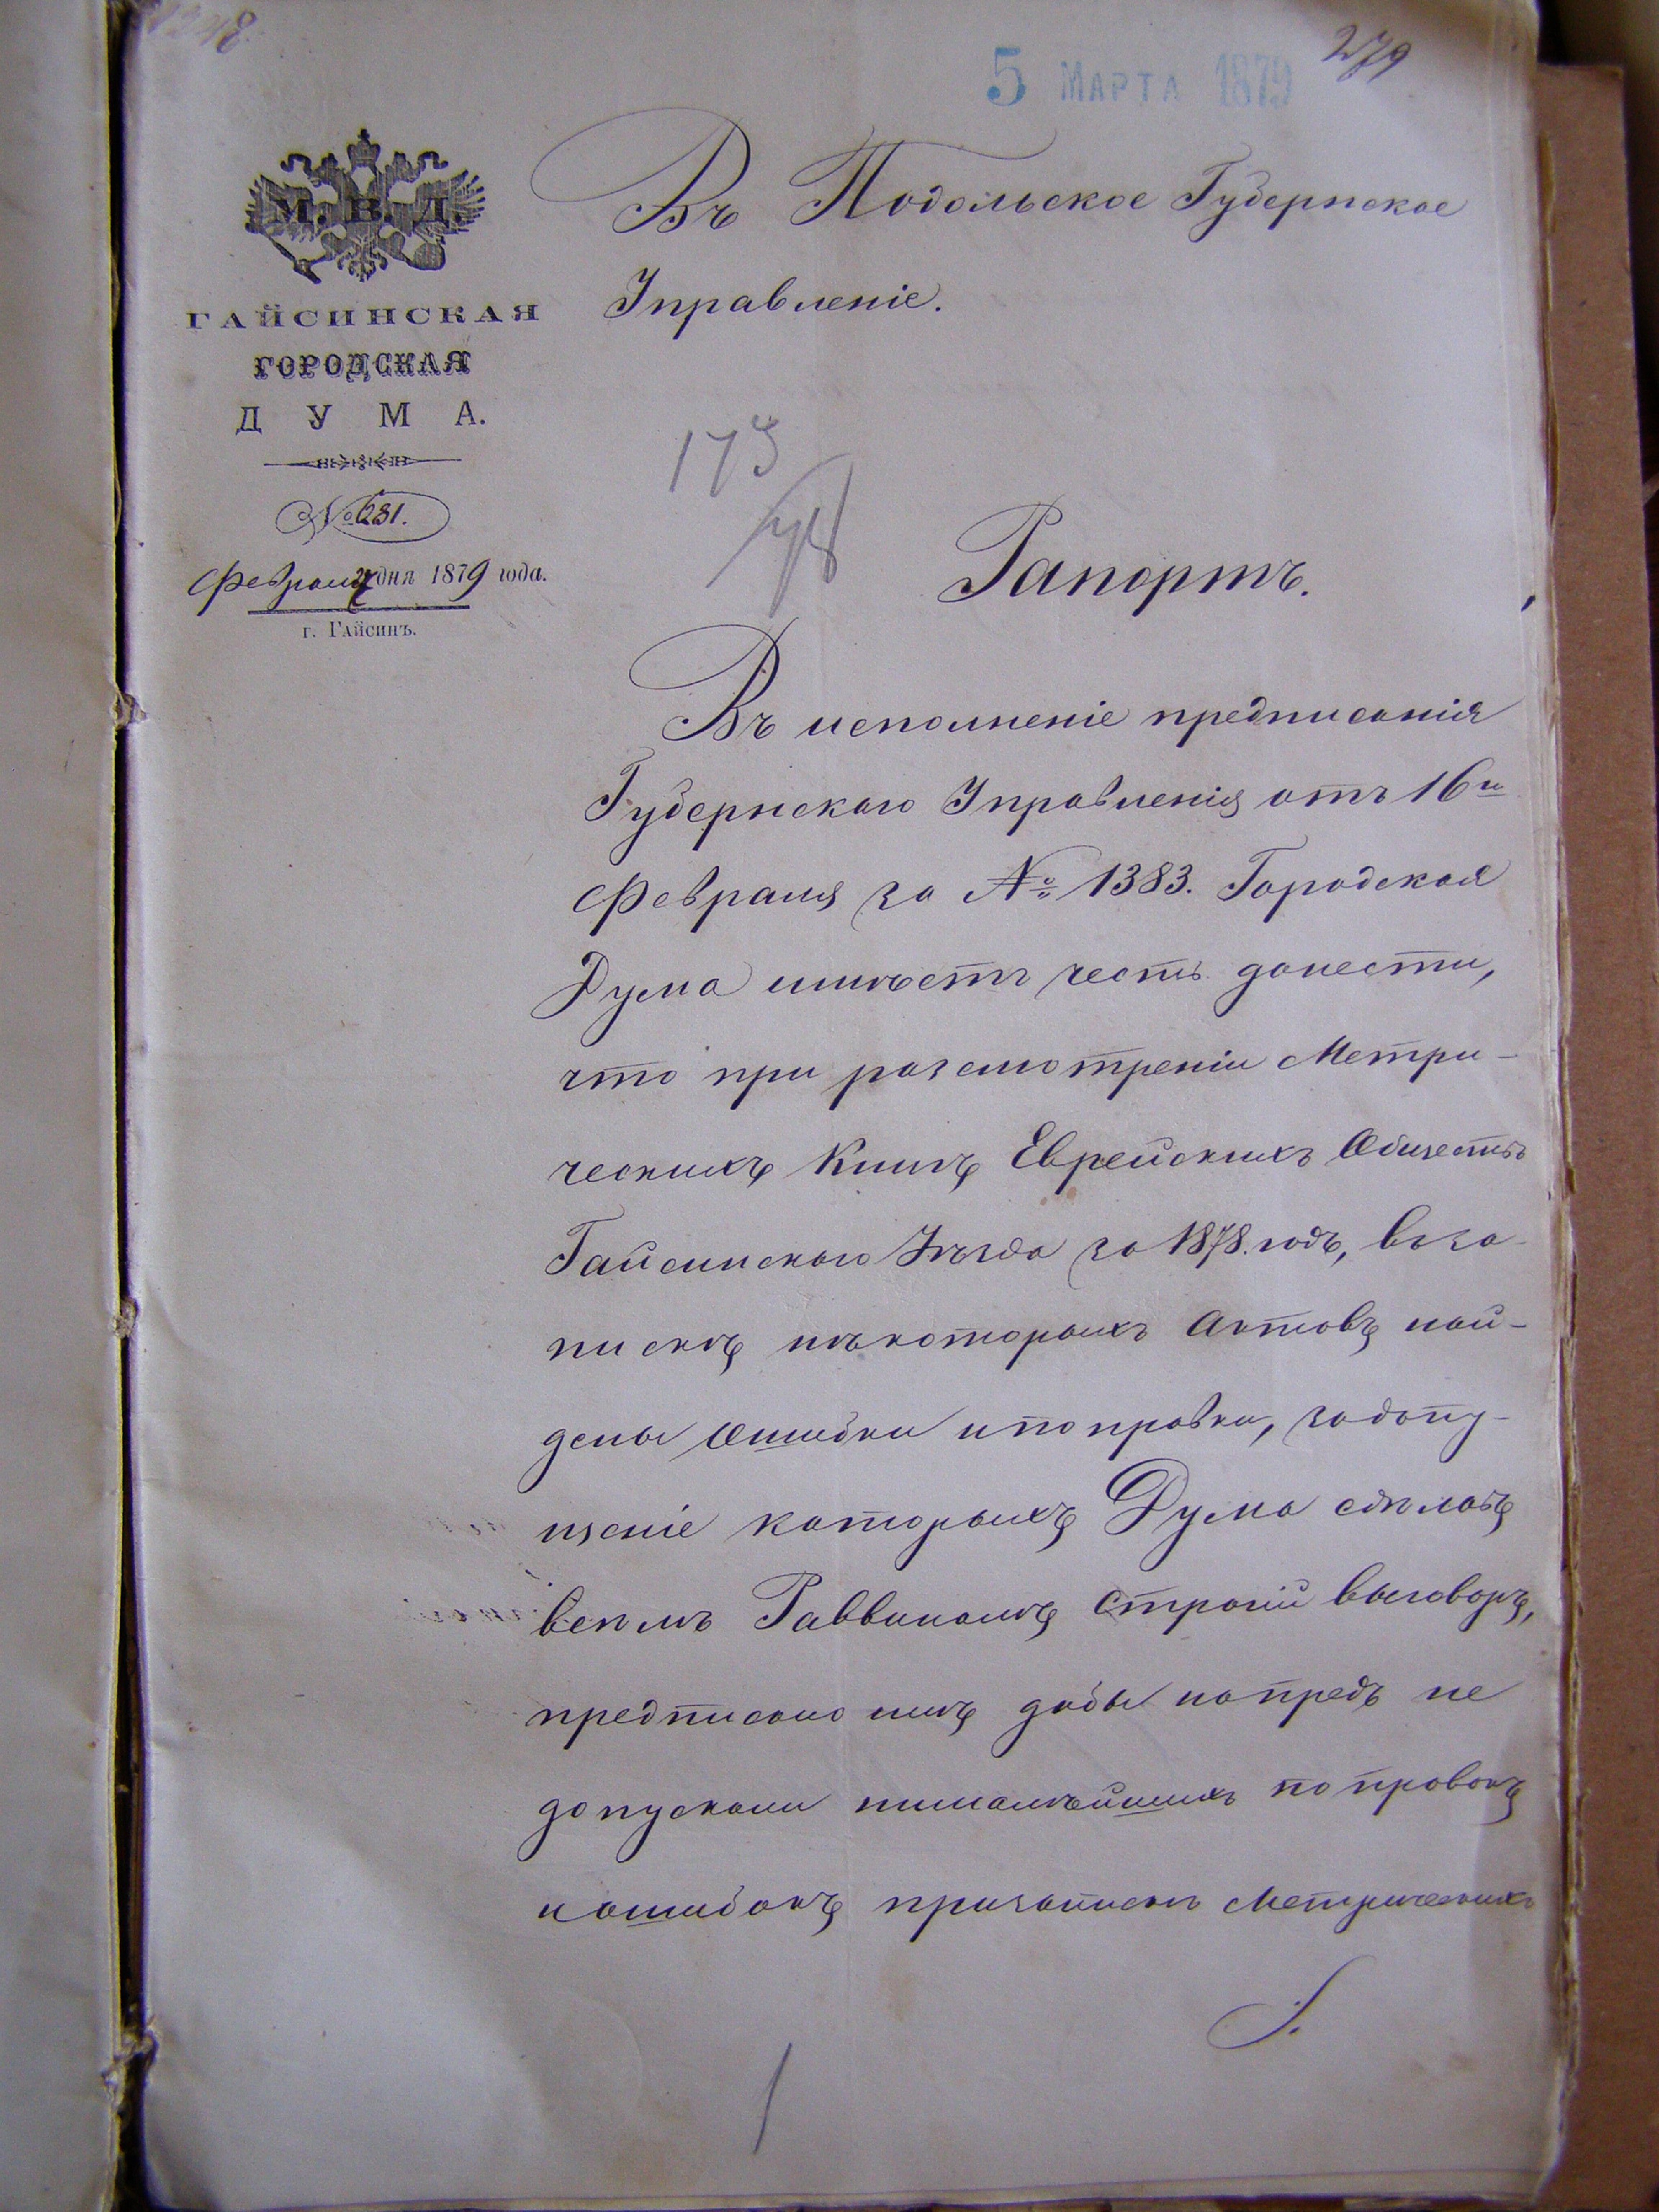 5 МАРТА 1879
279
М. В. Д.
ГАЙСИНСКАЯ
ГОРОДСКАЯ
ДУМА.
№ 631.
Февраля 27 дня 1879 года.
г. Гайсинъ.
Въ Подольское Губернское
Управленіе.
173
Рапортъ.
Въ исполненіе предписанія
Губернскаго Управленія отъ 16го
Февраля за № 1383. Городская
Дума имѣетъ честь донести,
что при разсмотреніи Метри-
ческихъ Книгъ Еврейскихъ Обществъ
Гайсинскаго Уѣзда за 1878. годъ, въ за
пискѣ нѣкоторыхъ Актовъ най-
дены Ошибки и поправки, за допу-
щеніе которыхъ Дума сдѣлавъ
всѣмъ Раввинамъ строгій выговоръ,
предписано имъ дабы напредь не
допускали ни малѣйшихъ поправокъ
и ошибокъ при запискѣ Метрическихъ